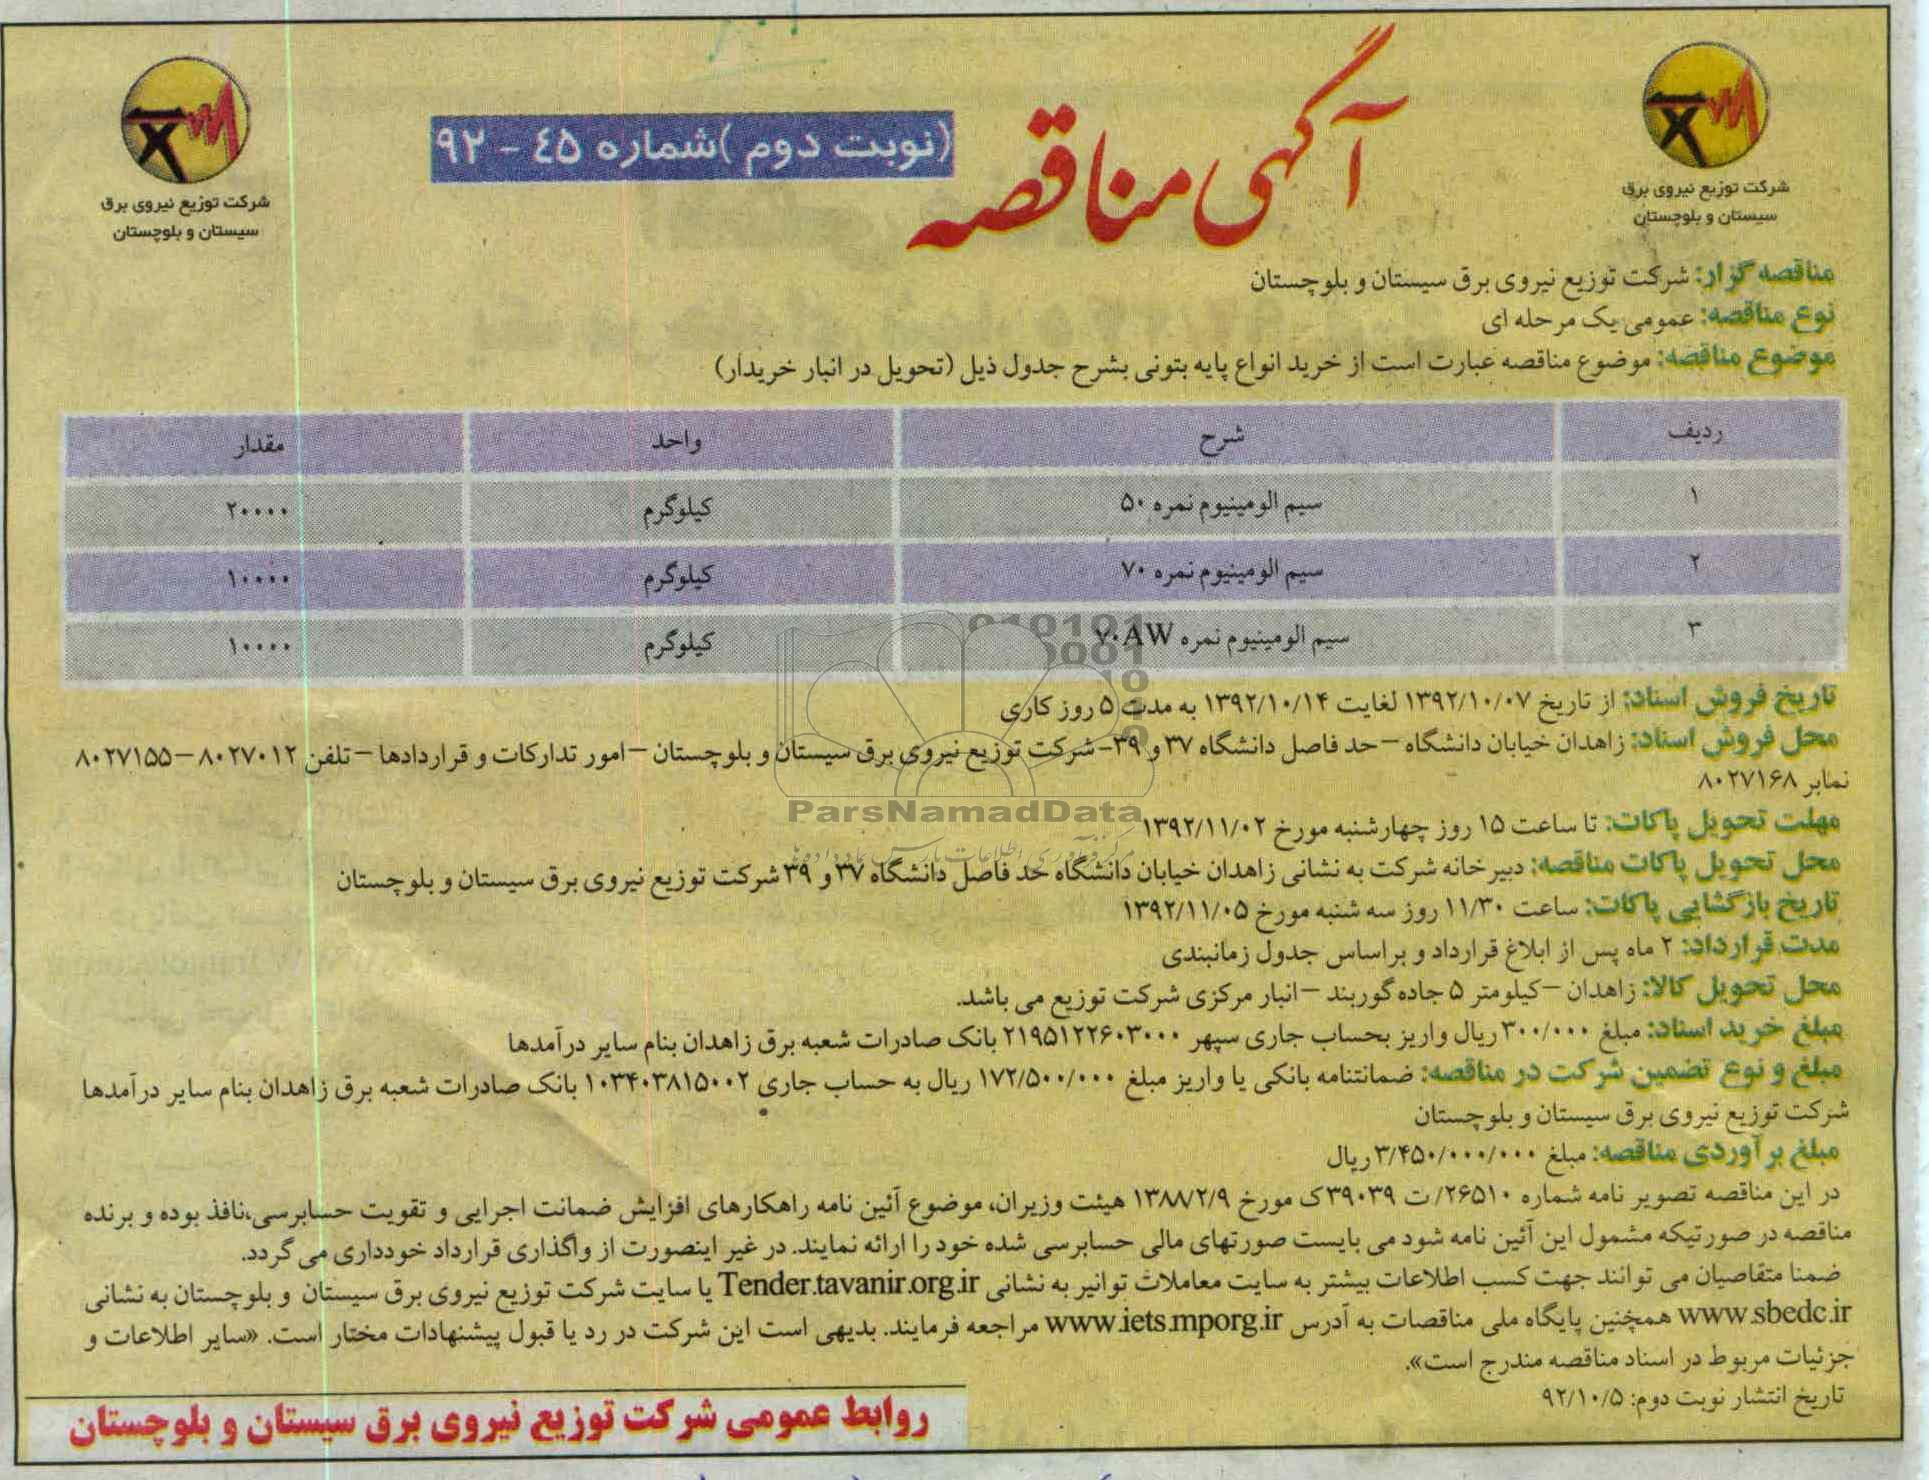 شرکت توزیع نیروی برق
سیستان و بلوچستان
آگهی مناقصه
(نوبت دوم )شماره ۴۵ - ۹۲
شرکت توزیع نیروی برق
سیستان و بلوچستان
مناقصه گزار: شرکت توزیع نیروی برق سیستان و بلوچستان
نوع مناقصه: عمومی یک مرحله ای
موضوع مناقصه: موضوع مناقصه عبارت است از خرید انواع پایه بتونی بشرح جدول ذیل (تحویل در انبار خریدار)
ردیف شرح واحد مقدار
۱ سیم الومینیوم نمره ۵۰ کیلوگرم ۲۰۰۰۰
۲ سیم الومینیوم نمره ۷۰ کیلوگرم ۱۰۰۰۰
۳ سیم الومینیوم نمره ۷۰AW کیلوگرم ۱۰۰۰۰
تاریخ فروش اسناد: از تاریخ ۱۳۹۲/۱۰/۰۷ لغایت ۱۳۹۲/۱۰/۱۴ به مدت ۵ روز کاری
محل فروش اسناد: زاهدان خیابان دانشگاه – حد فاصل دانشگاه ۳۷ و ۳۹- شرکت توزیع نیروی برق سیستان و بلوچستان – امور تدارکات و قراردادها – تلفن ۸۰۲۷۰۱۲ – ۸۰۲۷۱۵۵
نمابر ۸۰۲۷۱۶۸
مهلت تحویل پاکات: تا ساعت ۱۵ روز چهارشنبه مورخ ۱۳۹۲/۱۱/۰۲
ParsNamadData
محل تحویل پاکات مناقصه: دبیرخانه شرکت به نشانی زاهدان خیابان دانشگاه حد فاصل دانشگاه ۳۷ و ۳۹ شرکت توزیع نیروی برق سیستان و بلوچستان
تاریخ بازگشایی پاکات: ساعت ۱۱/۳۰ روز سه شنبه مورخ ۱۳۹۲/۱۱/۰۵
مدت قرارداد: ۲ ماه پس از ابلاغ قرارداد و براساس جدول زمانبندی
محل تحویل کالا: زاهدان – کیلومتر ۵ جاده گوربند – انبار مرکزی شرکت توزیع می باشد.
مبلغ خرید اسناد: مبلغ ۳۰۰/۰۰۰ ریال واریز بحساب جاری سپهر ۲۱۹۵۱۲۲۶۰۳۰۰۰ بانک صادرات شعبه برق زاهدان بنام سایر درآمدها
مبلغ و نوع تضمین شرکت در مناقصه: ضمانتنامه بانکی یا واریز مبلغ ۱۷۲/۵۰۰/۰۰۰ ریال به حساب جاری ۱۰۳۴۰۳۸۱۵۰۰۲ بانک صادرات شعبه برق زاهدان بنام سایر درآمدها
شرکت توزیع نیروی برق سیستان و بلوچستان
مبلغ برآوردی مناقصه: مبلغ ۳/۴۵۰/۰۰۰/۰۰۰ ریال
در این مناقصه تصویر نامه شماره ۲۶۵۱۰/ ت ۳۹۰۳۹ک مورخ ۱۳۸۸/۲/۹ هیئت وزیران، موضوع آئین نامه راهکارهای افزایش ضمانت اجرایی و تقویت حسابرسی،نافذ بوده و برنده
مناقصه در صورتیکه مشمول این آئین نامه شود می بایست صورتهای مالی حسابرسی شده خود را ارائه نمایند. در غیر اینصورت از واگذاری قرارداد خودداری می گردد.
ضمنا متقاصیان می توانند جهت کسب اطلاعات بیشتر به سایت معاملات توانیر به نشانی Tender.tavanir.org.ir یا سایت شرکت توزیع نیروی برق سیستان و بلوچستان به نشانی
www.sbedc.ir همچنین پایگاه ملی مناقصات به آدرس www.iets.mporg.ir مراجعه فرمایند. بدیهی است این شرکت در رد یا قبول پیشنهادات مختار است. «سایر اطلاعات و
جزئیات مربوط در اسناد مناقصه مندرج است».
تاریخ انتشار نوبت دوم: ۹۲/۱۰/۵
روابط عمومی شرکت توزیع نیروی برق سیستان و بلوچستان